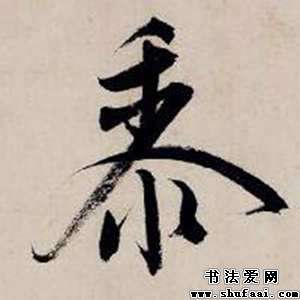 黍
书法爱网
www.shufaai.com